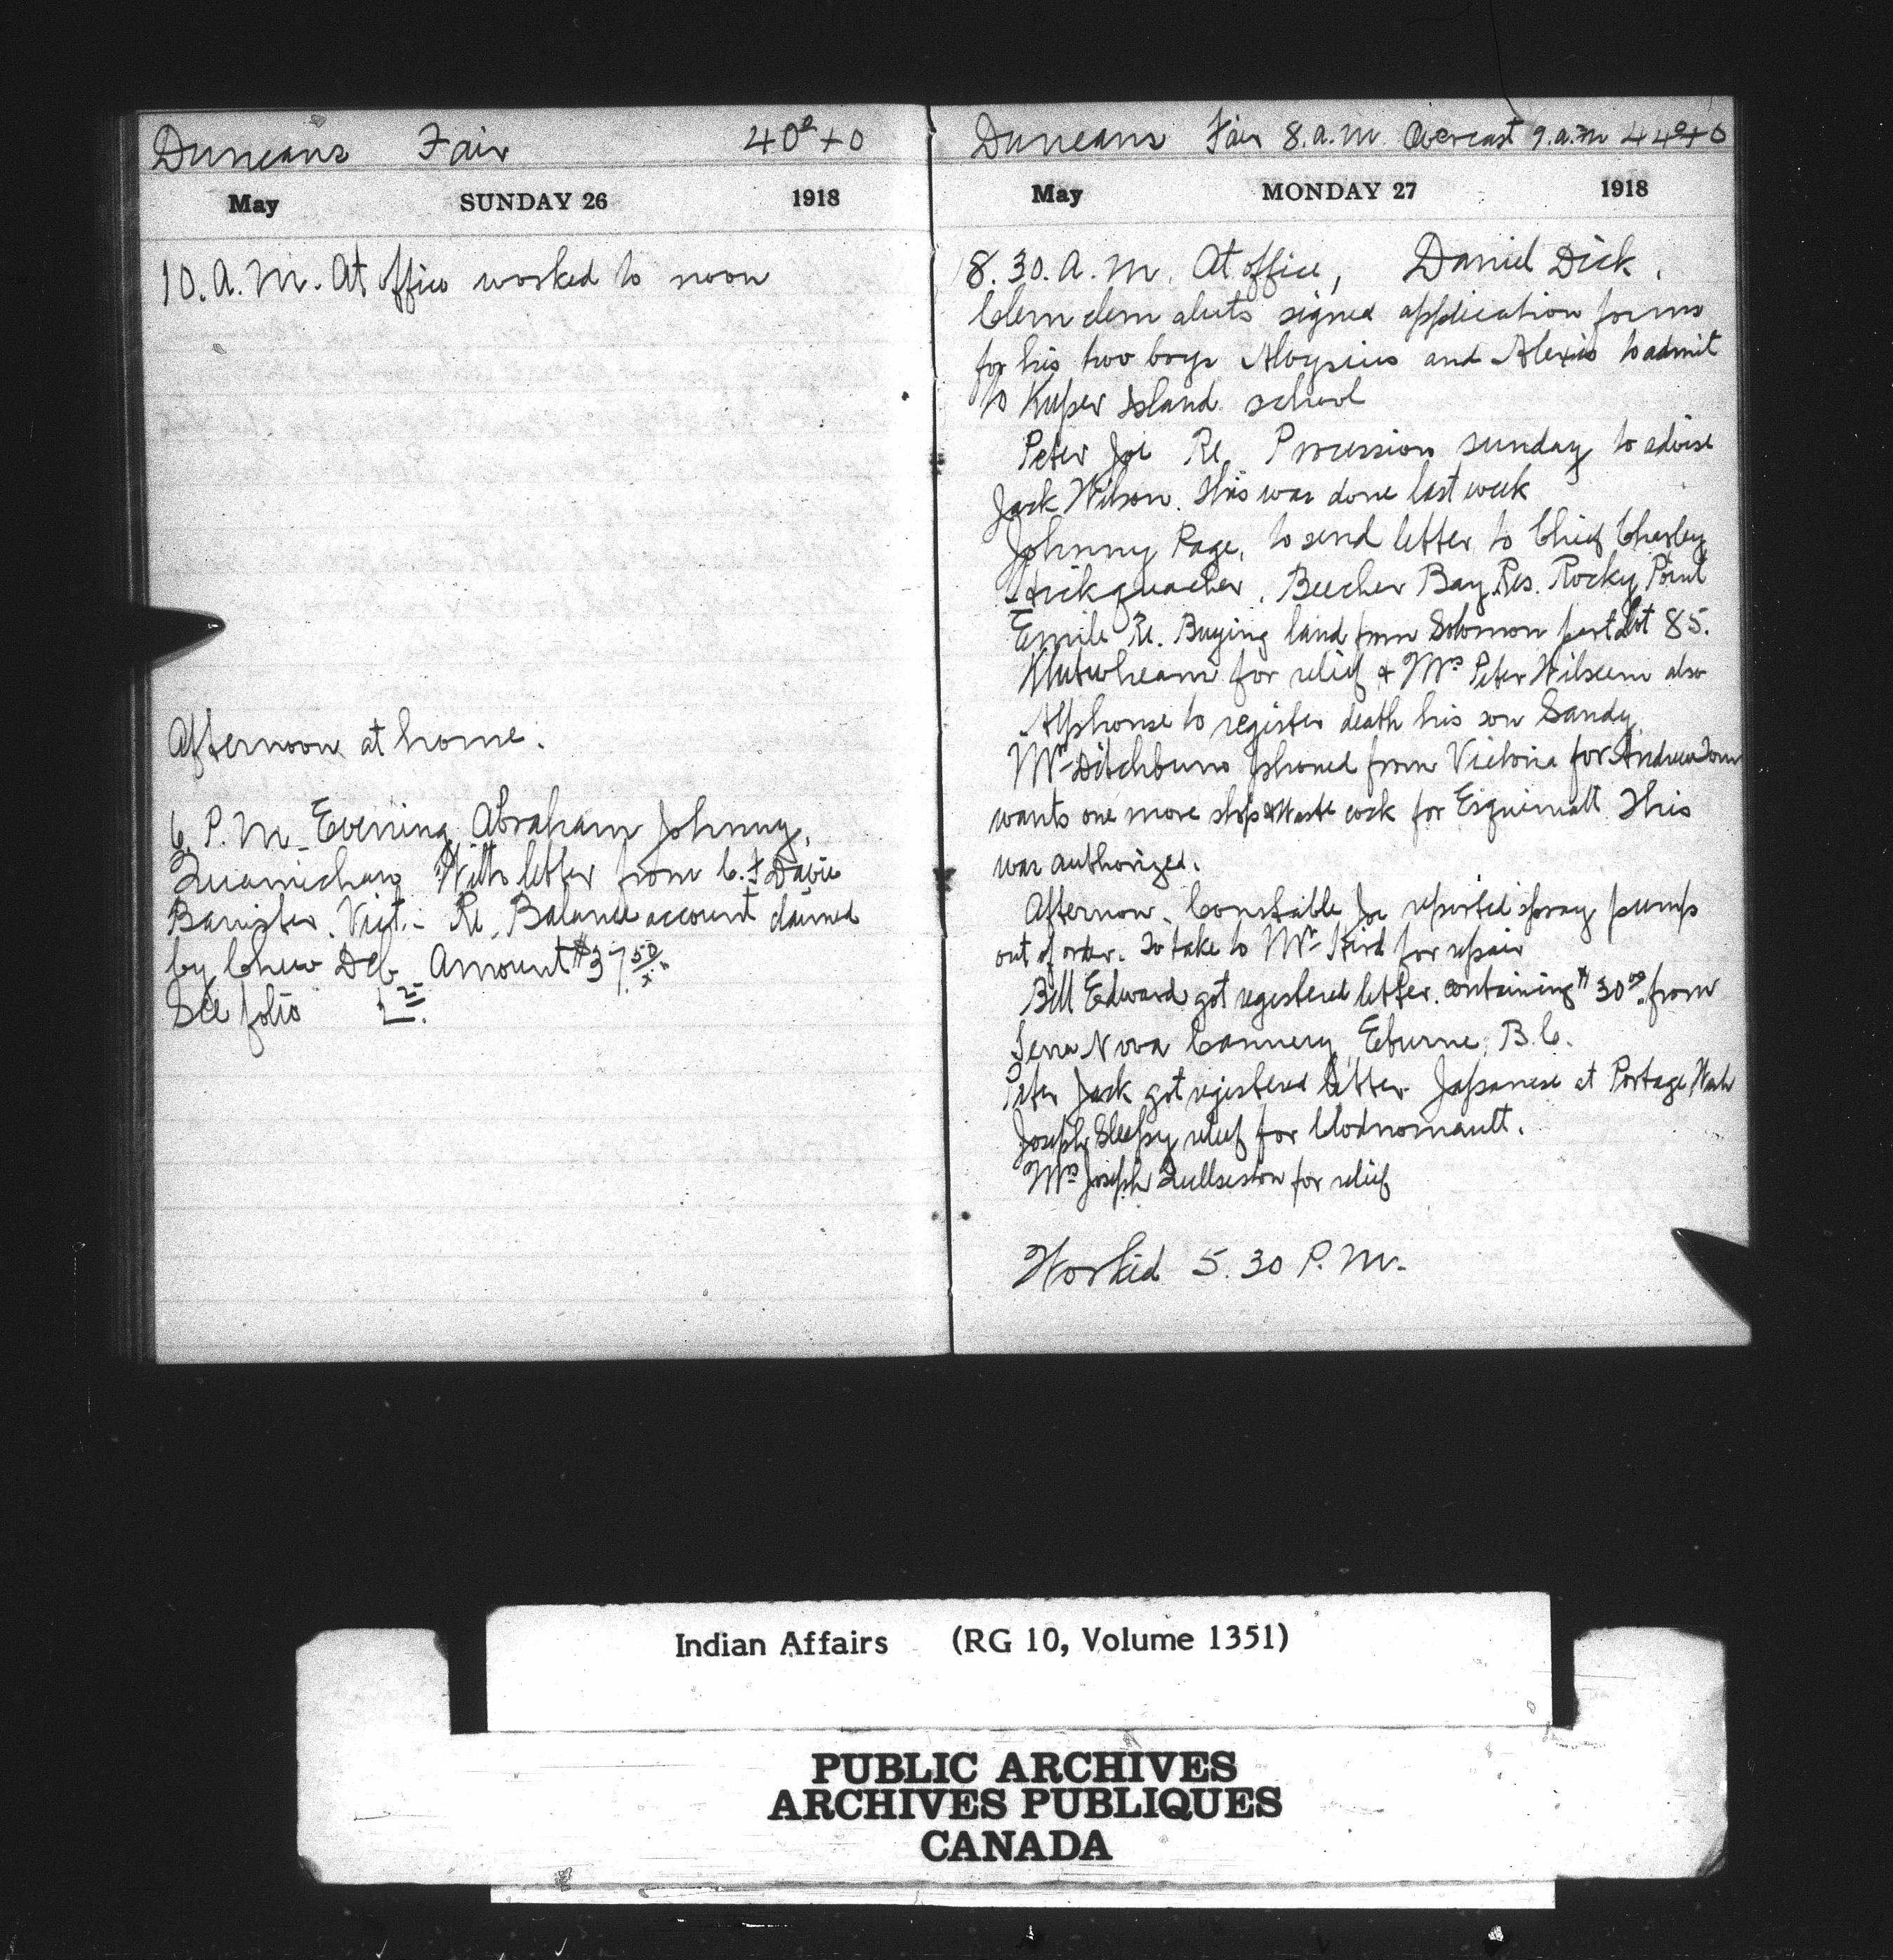 Duncans Fair 40° + 0
May SUNDAY 26 1918
10. A. M. At office worked to noon
Afternoon at home.
6. P. M. Evening Abraham Johnny,
Quamichan With letter from C. F Davie
Barrister. Vict. - Re. Balance account claimed
by Chew Deb Amount $37.50
See folio
Duncans Fair 8. a. m. Overcast 9. a. m 44° + 0
May MONDAY 27 1918
8. 30. A. M. At office, Daniel Dick.
Clemclemaluts signed application forms
for his two boys Aloysius and Alexis to admit
to Kuper Island school
Peter Joe Re. Procession sunday to advise
Jack Wilson. This was done last week
Johnny Page, to send letter to Chief Charley
Beecher Bay Res. Rocky Point
Emile Re. Buying land from Solomon part Lot 85.
for relief & Mrs Peter also
Alphonse to register death his son Sandy
Mr Ditchburn phoned from Victoria for Andrew Tom
wants one more stop & Waste cock for Esquimalt This
was authorized.
Afternoon. Constable Joe reported spray pump
out of order. To take to Mr for repair
Bill Edward got registered letter. containing $30.00 from
Terra Nova Cannery, Eburne, B. C.
Peter Jack got registered letter Japanese at Portage Wash
Joseph Sleepy relief for
Mrs Joseph for relief
Worked 5. 30 P. M.
Indian Affairs (RG 10, Volume 1351)
PUBLIC ARCHIVES
ARCHIVES PUBLIQUES
CANADA